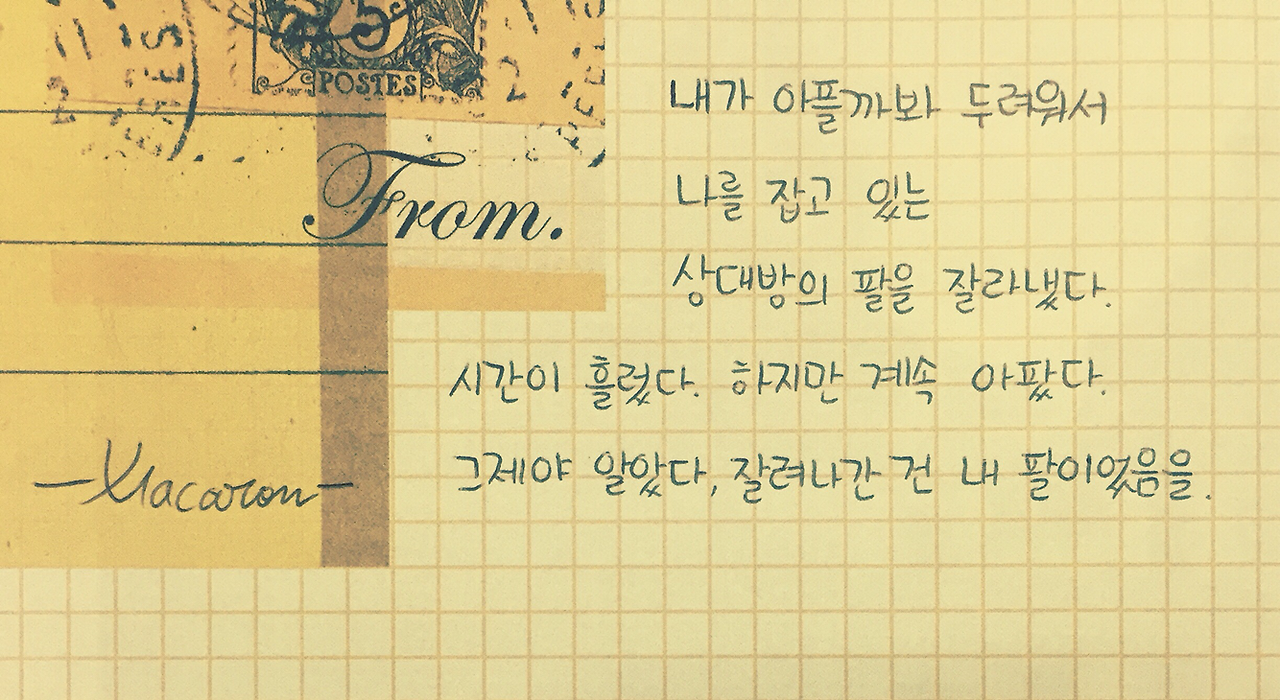 25
POSTES
From.
내가 아플까봐 두려워서
나를 잡고 있는
상대방의 팔을 잘라냈다.
시간이 흘렀다. 하지만 계속 아팠다.
그제야 알았다, 잘려나간 건 내 팔이었음을.
-Macaron-